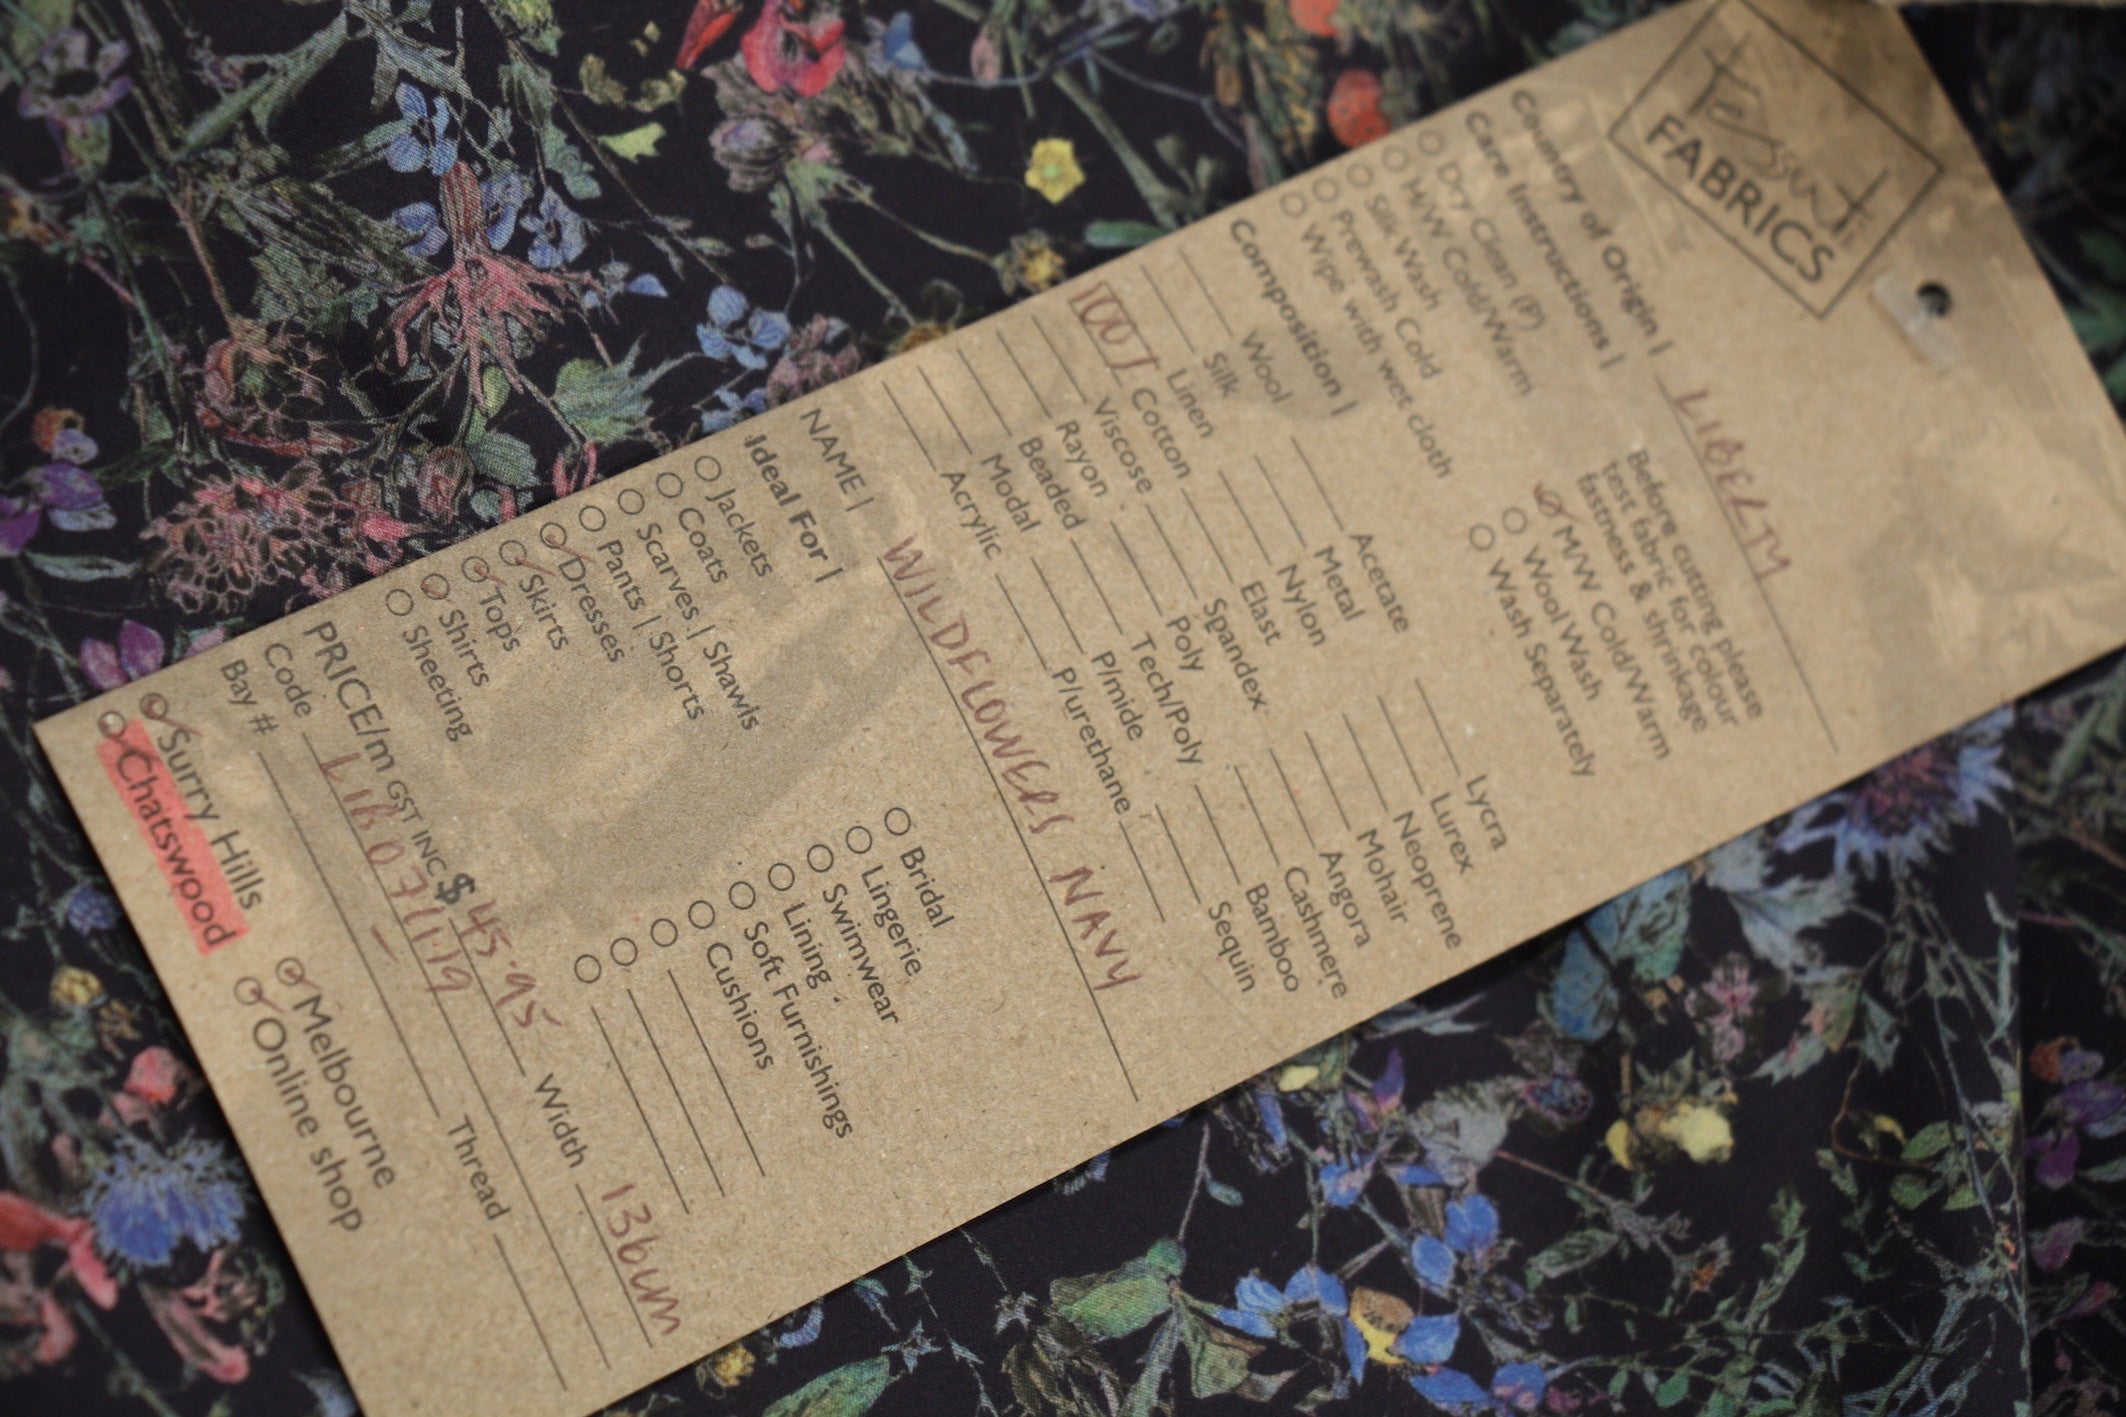 Tessuti
FABRICS
Country of Origin | LIBERTY
Care Instructions |
Before cutting please
test fabric for colour
fastness & shrinkage
Dry Clean (P)
H/W Cold/Warm
Silk Wash
Prewash Cold
Wipe with wet cloth
M/W Cold/Warm
Wool Wash
Wash Separately
Composition |
Wool
Silk
Linen
100% Cotton
Viscose
Rayon
Beaded
Modal
Acrylic
Acetate
Metal
Nylon
Elast
Spandex
Poly
Tech/Poly
P/mide
P/urethane
Lycra
Lurex
Neoprene
Mohair
Angora
Cashmere
Bamboo
Sequin
NAME | WILDFLOWERS NAVY
Ideal For |
Jackets
Coats
Scarves | Shawls
Pants | Shorts
Dresses
Skirts
Tops
Shirts
Sheeting
Bridal
Lingerie
Swimwear
Lining
Soft Furnishings
Cushions
PRICE/m GST INC $ 45.95 Width 136cm
Code LIB071.19 Thread
Bay # –
Surry Hills Melbourne
Chatswood Online shop